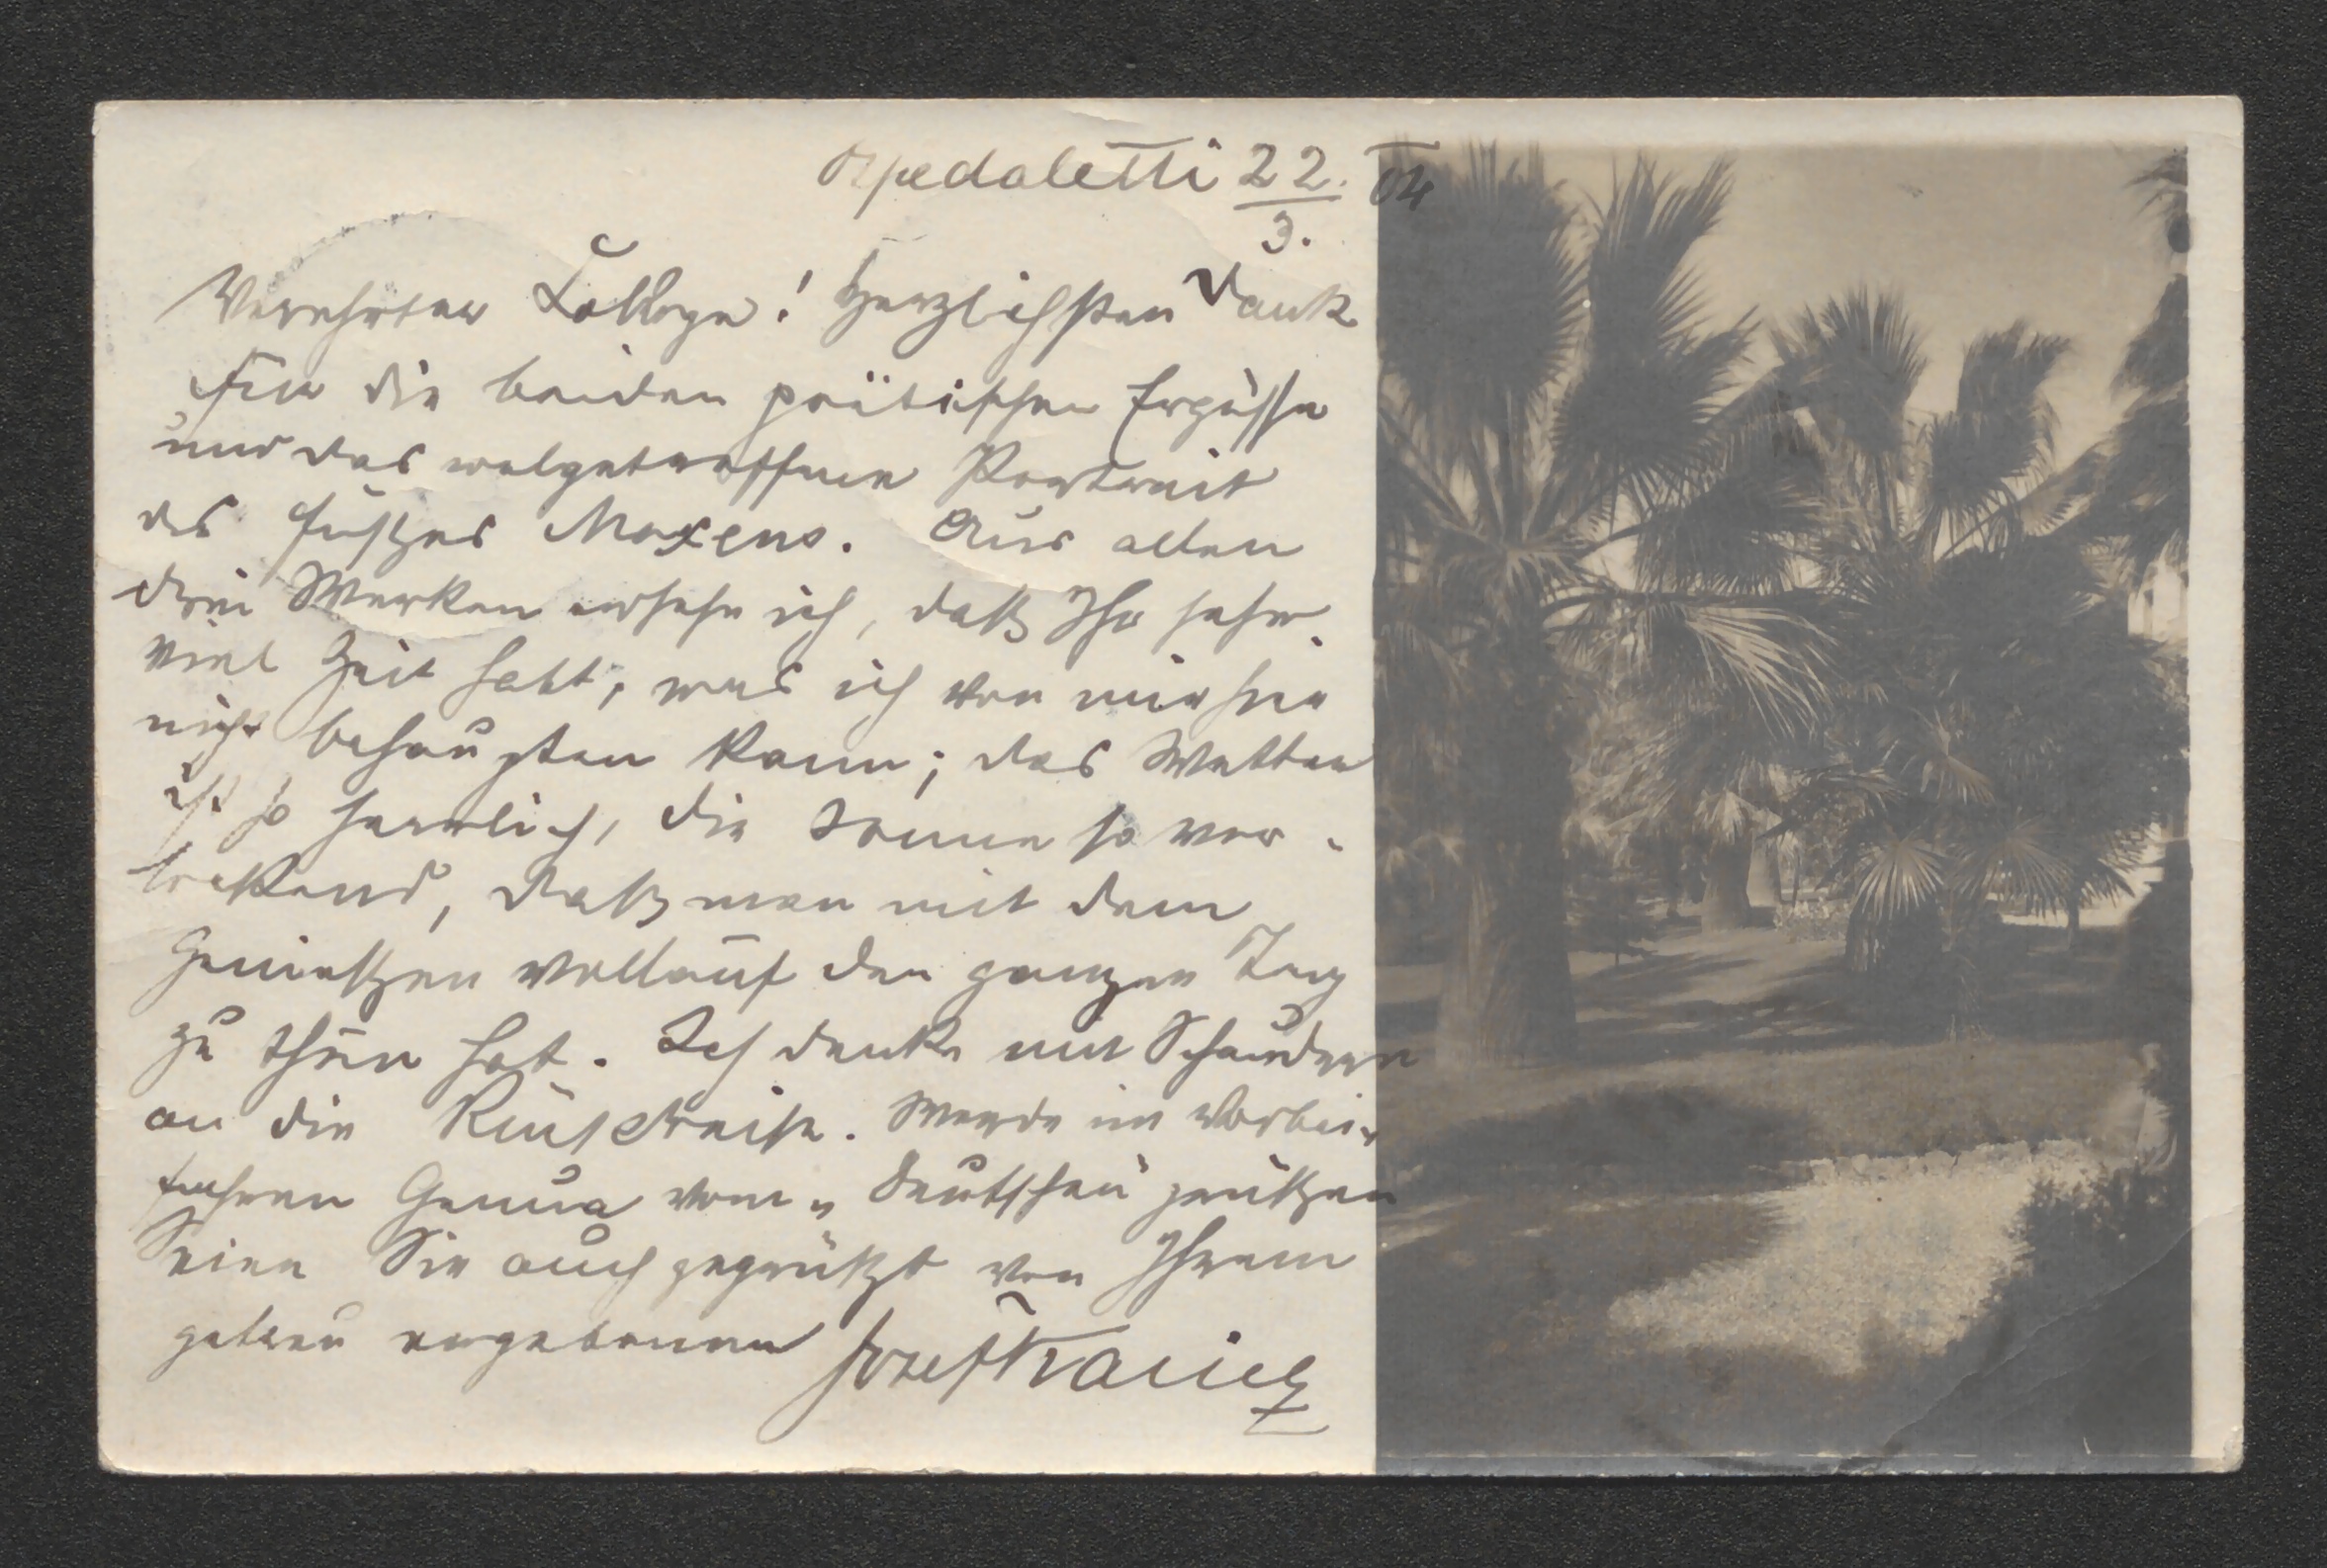 Ospedaletti 22./3. 04
Verehrter College! Herzlichsten Dank
für die beiden poëtischen Ergüsse
und das wolgetroffene Portrait
des Maxens. Aus allen
drei Werken ersehe ich, daß Ihr sehr
viel Zeit habt, was ich von mir hier
nicht behaupten kann; das Wetter
ist so herrlich, die Sonne so ver-
lockend, daß man mit dem
Genießen vollauf den ganzen Tag
zu thun hat. Ich denke mit Schaudern
an die Rückreise. Werde im Vorbei-
fahren Genua vom „Deutschen" grüßen
Seien Sie auch gegrüßt von Ihrem
getreu ergebenen Josef